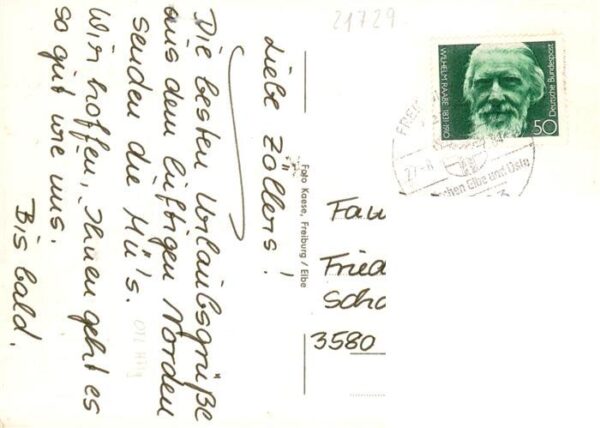 Liebe Zöllers!
Die besten Urlaubsgrüße
aus dem luftigen Norden
senden die Mü's.
Wir hoffen, Ihnen geht es
so gut wie uns.
Bis bald.
21729
Foto Kaese, Freiburg / Elbe
WILHELM RAABE 1831-1910
Deutsche Bundespost
50
FREI
27.-8
chen Elbe und Oste
Fried
3580